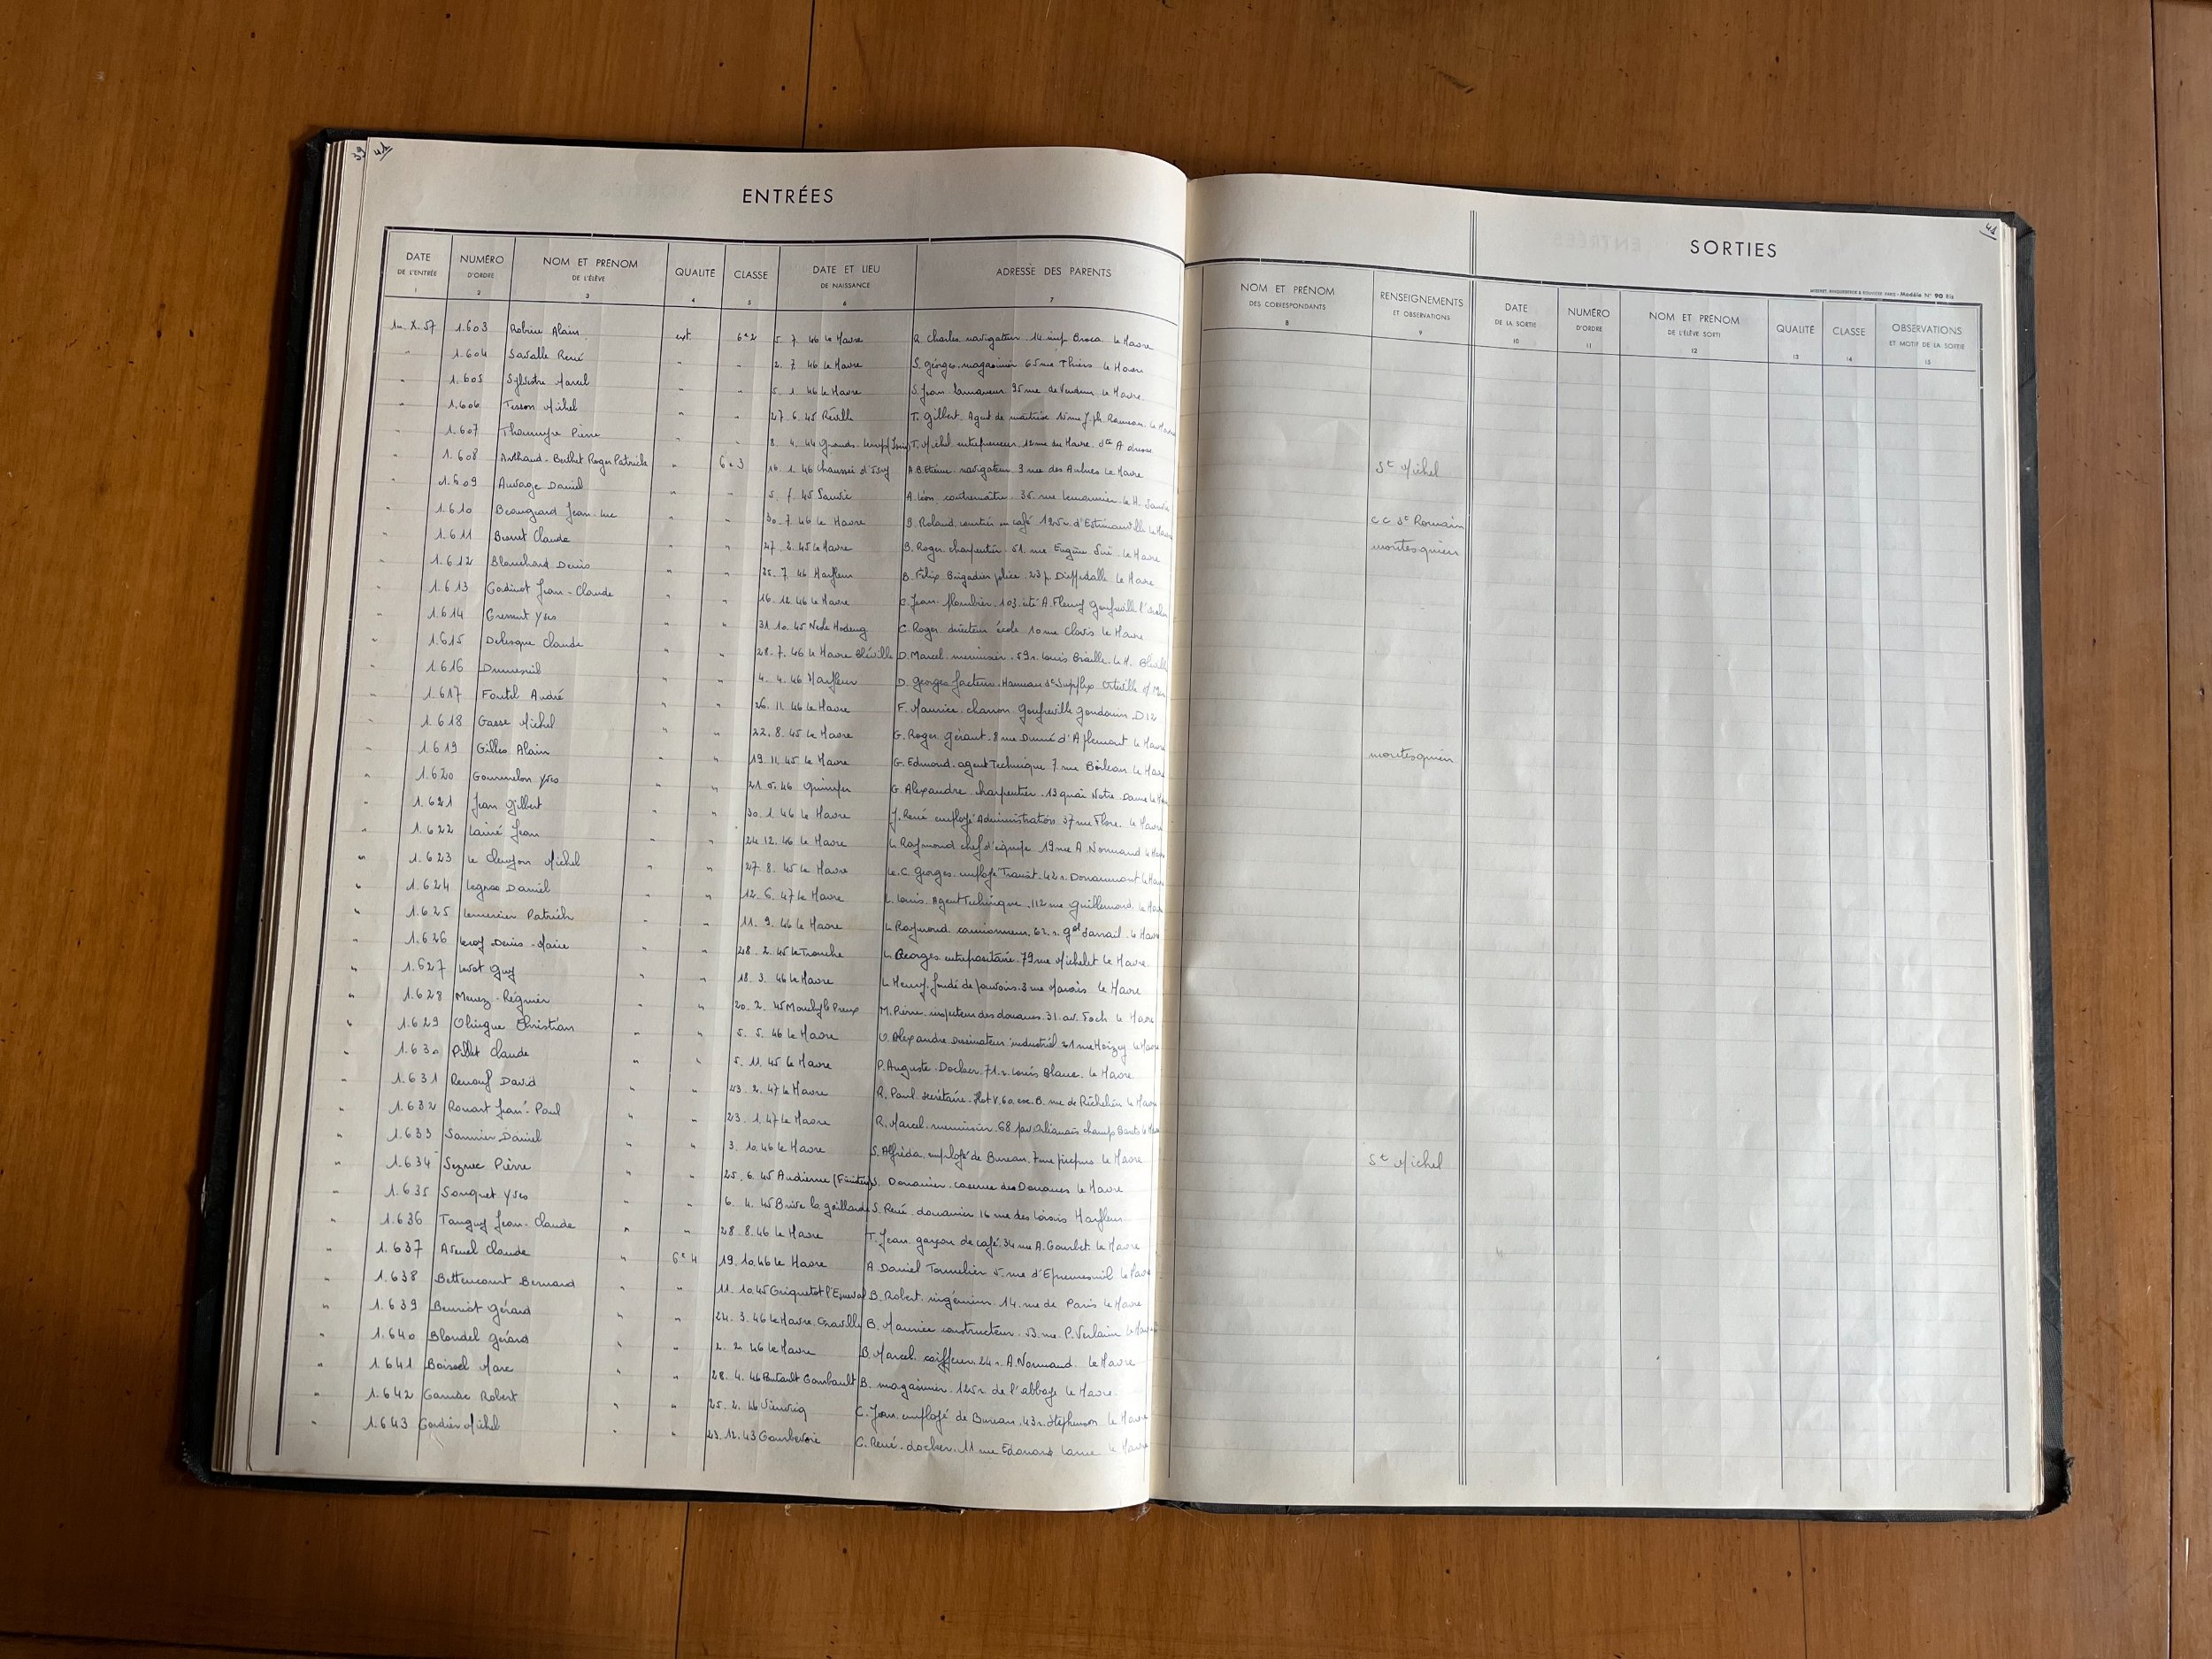 39 41
ENTRÉES
DATE DE L'ENTRÉE 1 NUMÉRO D'ORDRE 2 NOM ET PRÉNOM DE L'ÉLÈVE 3 QUALITÉ 4 CLASSE 5 DATE ET LIEU DE NAISSANCE 6 ADRESSE DES PARENTS 7
1.X.57 1.603 Alain ext. 6e2 5. 7. 46 Le Havre R. Charles navigateur 14 imp Broca Le Havre
" 1.604 Savalle René " " 2. 7. 46 Le Havre S. Georges magasinier 65 rue Thiers Le Havre
" 1.605 Sylvestre Marcel " " 5. 1. 46 Le Havre S. Jean 95 rue de Verdun Le Havre
" 1.606 Tesson Michel " " 27. 6. 45 Réville T. Gilbert Agent de maîtrise 15 rue J.Ph. Rameau Le Havre
" 1.607 Pierre " " 8. 4. 44 T. Michel entrepreneur 12 rue du Havre. Ste Adresse
" 1.608 Arthaud-Berthet Roger Patrick " 6e3 16. 1. 46 Chaussée d'Ivry A.B. Etienne navigateur 9 rue des Aulnes Le Havre
" 1.609 Auvage Daniel " " 5. 45 Sanvic A. Léon contremaître 35 rue Lemonnier Le H. Sanvic
" 1.610 Beaugeard Jean-Luc " " 30. 7. 46 Le Havre B. Roland courtier en café 125 r. d'Estimauville Le Havre
" 1.611 Claude " " 27. 2. 45 Le Havre B. Roger charpentier 51 rue Eugène Sue Le Havre
" 1.612 Blanchard Denis " " 25. 7. 46 Harfleur B. Félix Brigadier police 23 Dieppedalle Le Havre
" 1.613 Cadinot Jean-Claude " " 16. 12. 46 Le Havre C. Jean Plombier 103 cité A. Fleury Gonfreville l'Orcher
" 1.614 Yves " " 31. 10. 45 Nesle Hodeng C. Roger directeur école 10 rue Clovis Le Havre
" 1.615 Delesque Claude " " 28. 7. 46 Le Havre Bléville D. Marcel menuisier 59 r. Louis Braille Le H. Bléville
" 1.616 Dumesnil " " 4. 4. 46 Harfleur D. Georges facteur Hameau St Supplix Octeville s/ Mer
" 1.617 André " " 26. 11. 46 Le Havre F. Maurice charron Gonfreville D12
" 1.618 Gasse Michel " " 22. 8. 45 Le Havre G. Roger gérant 8 rue Dumé d'Aplemont Le Havre
" 1.619 Gilles Alain " " 19. 11. 45 Le Havre G. Edmond agent Technique 7 rue Boileau Le Havre
" 1.620 Gourmelon Yves " " 21. 5. 46 Quimper G. Alexandre charpentier 13 quai Notre Dame Le Havre
" 1.621 Jean Gilbert " " 30. 1. 46 Le Havre J. René employé Administration 37 rue Flore Le Havre
" 1.622 Lainé Jean " " 24. 12. 46 Le Havre L. Raymond chef d'équipe 19 rue A. Normand Le Havre
" 1.623 Michel " " 27. 8. 45 Le Havre Le C. Georges employé Transat 42 r. Douaumont Le Havre
" 1.624 Legros Daniel " " 12. 6. 47 Le Havre L. Louis Agent Technique 112 rue Guillemard Le Havre
" 1.625 Lemercier Patrick " " 11. 9. 46 Le Havre L. Raymond camionneur 62 r. Gal Sarrail Le Havre
" 1.626 Leroy Denis-Marie " " 28. 2. 45 La Tronche L. Georges entrepositaire 79 rue Michelet Le Havre
" 1.627 Guy " " 18. 3. 46 Le Havre L. Henry fondé de pouvoirs 3 rue Le Havre
" 1.628 Régnier " " 20. 2. 45 Monchy le Preux M. Pierre inspecteur des douanes 31 av. Foch Le Havre
" 1.629 Olingue Christian " " 5. 5. 46 Le Havre O. Alexandre dessinateur industriel 21 rue Le Havre
" 1.630 Pillet Claude " " 5. 11. 45 Le Havre P. Auguste Docker 71 r. Louis Blanc Le Havre
" 1.631 Renouf David " " 23. 2. 47 Le Havre R. Paul secrétaire B. rue de Richelieu Le Havre
" 1.632 Rouart Jean-Paul " " 23. 1. 47 Le Havre R. Marcel menuisier 68 Le Havre
" 1.633 Saunier Daniel " " 3. 10. 46 Le Havre S. Alfréda employé de Bureau 7 rue Le Havre
" 1.634 Seznec Pierre " " 25. 6. 45 Audierne (Finistère) S. Douanier caserne des Douanes Le Havre
" 1.635 Souquet Yves " " 6. 4. 45 Brive la gaillarde S. René douanier 16 rue des Loisirs Harfleur
" 1.636 Tanguy Jean-Claude " " 28. 8. 46 Le Havre T. Jean garçon de café 34 rue A. Courbet Le Havre
" 1.637 Avenel Claude " 6e4 19. 10. 46 Le Havre A. Daniel Tonnelier 5 rue d'Epremesnil Le Havre
" 1.638 Bettencourt Bernard " " 11. 10. 45 Criquetot l'Esneval B. Robert ingénieur 14 rue de Paris Le Havre
" 1.639 Gérard " " 24. 3. 46 Le Havre Graville B. Maurice constructeur 53 rue P. Verlaine Le Havre
" 1.640 Blondel Gérard " " 2. 2. 46 Le Havre B. Marcel coiffeur 24 r. A. Normand Le Havre
" 1.641 Boissel Marc " " 28. 4. 46 Pontault Combault B. magasinier 125 r. de l'abbaye Le Havre
" 1.642 Robert " " 25. 2. 46 C. Jean employé de Bureau 43 r. Stephenson Le Havre
" 1.643 Cordier Michel " " 23. 12. 43 Courbevoie C. René docker 11 rue Edouard Larue Le Havre
41
SORTIES
Modèle N° 90 Bis
NOM ET PRÉNOM DES CORRESPONDANTS 8 RENSEIGNEMENTS ET OBSERVATIONS 9 DATE DE LA SORTIE 10 NUMÉRO D'ORDRE 11 NOM ET PRÉNOM DE L'ÉLÈVE SORTI 12 QUALITÉ 13 CLASSE 14 OBSERVATIONS ET MOTIF DE LA SORTIE 15
St Michel
CC St Romain
montesquieu
montesquieu
St Michel